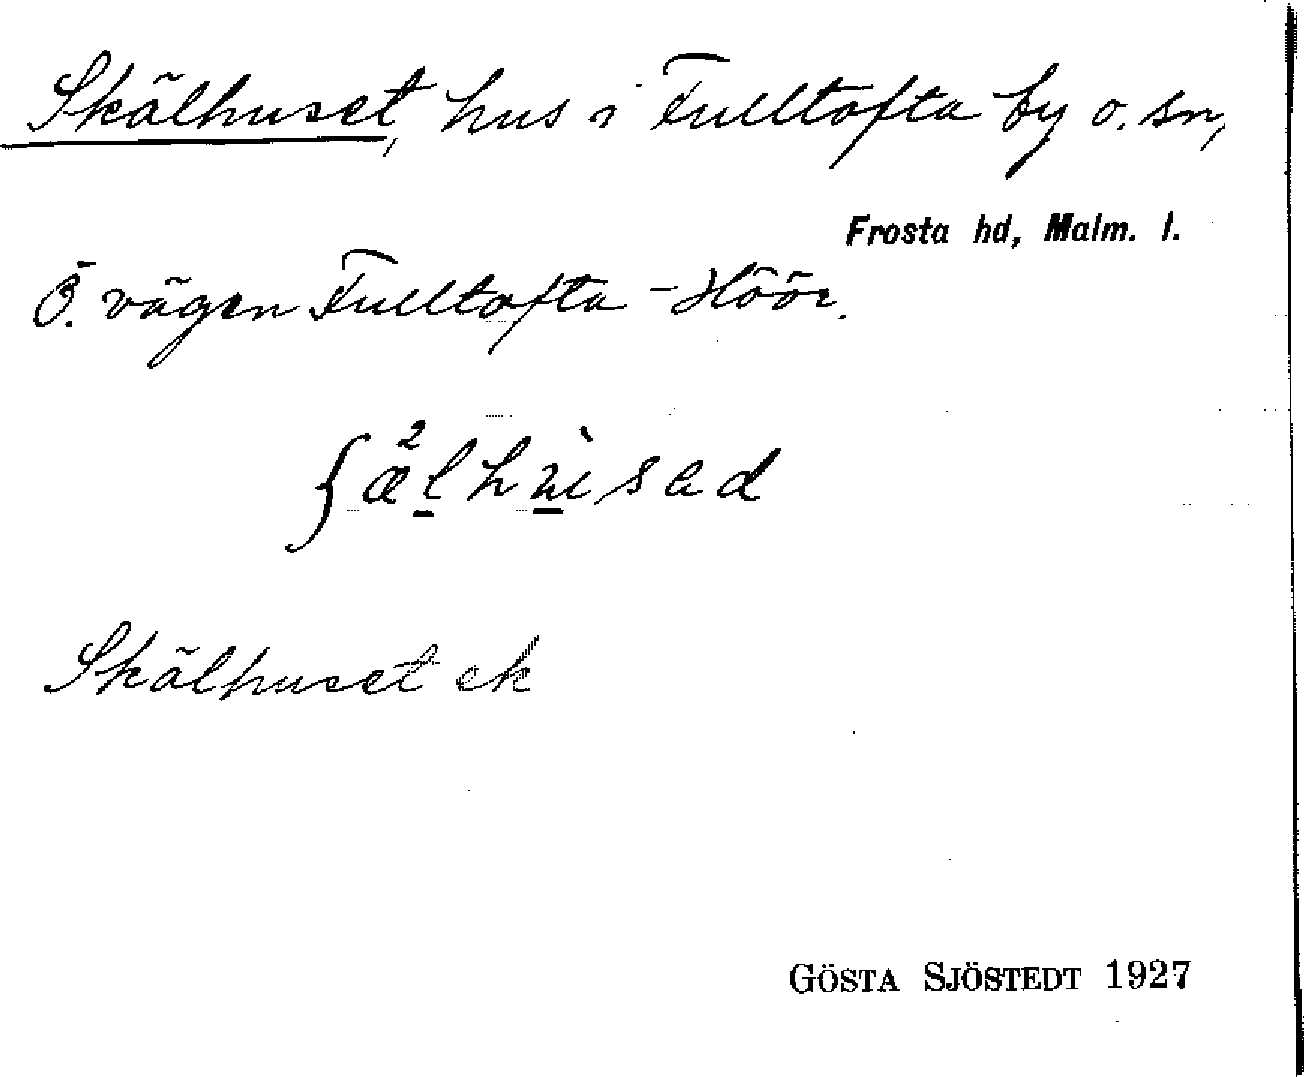 Skälhuset, hus i Fulltofta by o. sn,
Frosta hd, Malm. l.
Ö. vägen Fulltofta - Höör.
ʃæ²lhùsad
Skälhuset ek
GÖSTA SJÖSTEDT 1927